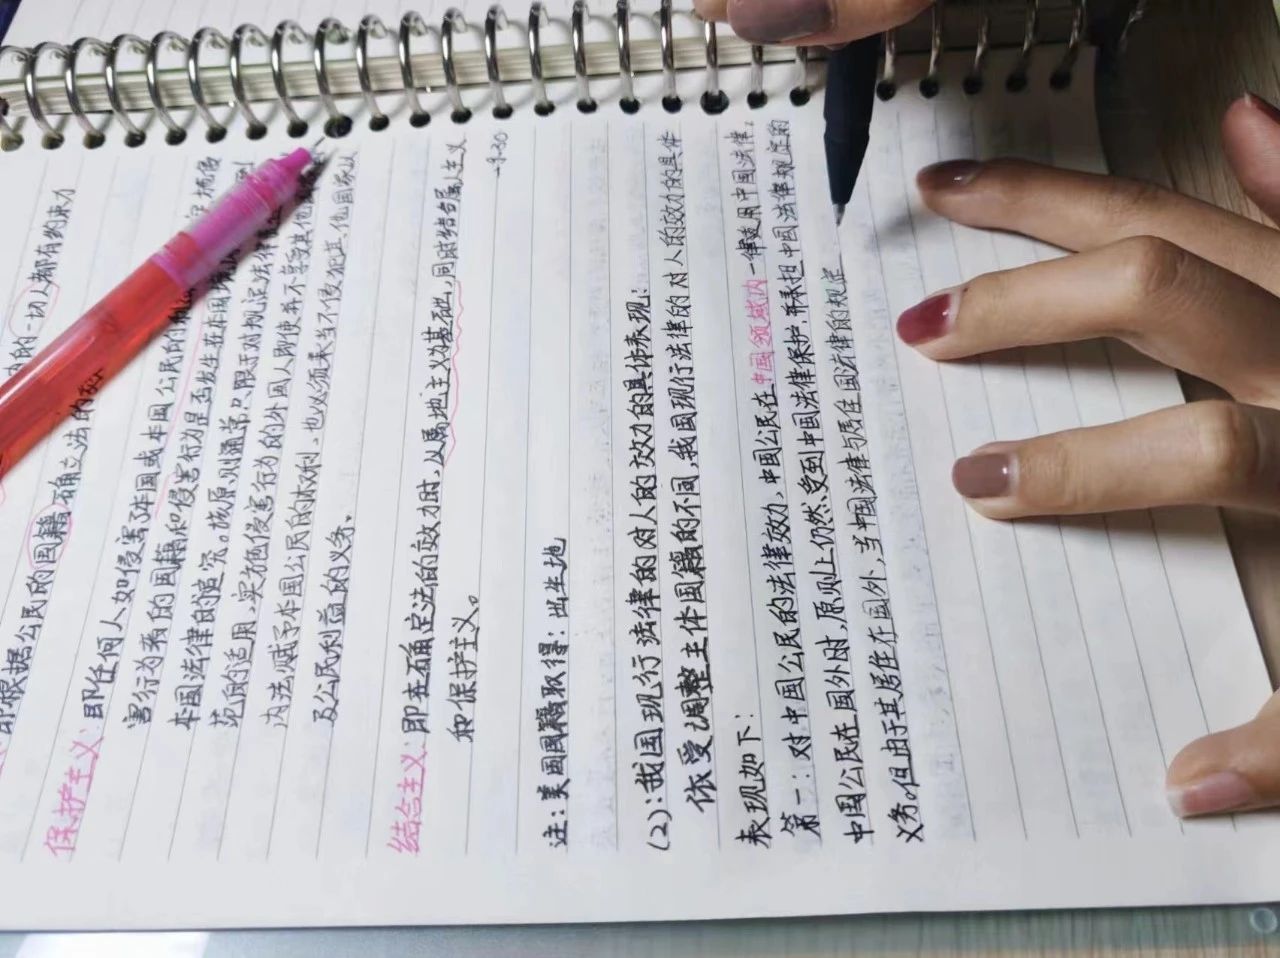 内的一切人都有约束力
即根据公民的国籍确立法的效
保护主义：即任何人如侵害了本国或本国公民的
害行为者的国籍和侵害行为是否发生在本国
本国法律的追究。该原则通常只限于对规定法律
范的适用，实施侵害行为的外国人即使并不享受其他国
内法赋予本国公民的权利，也必须承当不侵犯其他国家以
及公民利益的义务。
结合主义：即在确定法的效力时，从属地主义为基础，同时结合属人主义
和保护主义。
注：美国国籍取得：出生地
(2)：我国现行法律的对人的效力的具体表现：
依受调整主体国籍的不同，我国现行法律的对人的效力的具体
表现如下：
第一：对中国公民的法律效力，中国公民在中国领域内一律适用中国法律；
中国公民在国外时，原则上仍然受到中国法律保护，并承担中国法律规定的
义务。但由于其居住在国外，当中国法律与居住国法律的规定